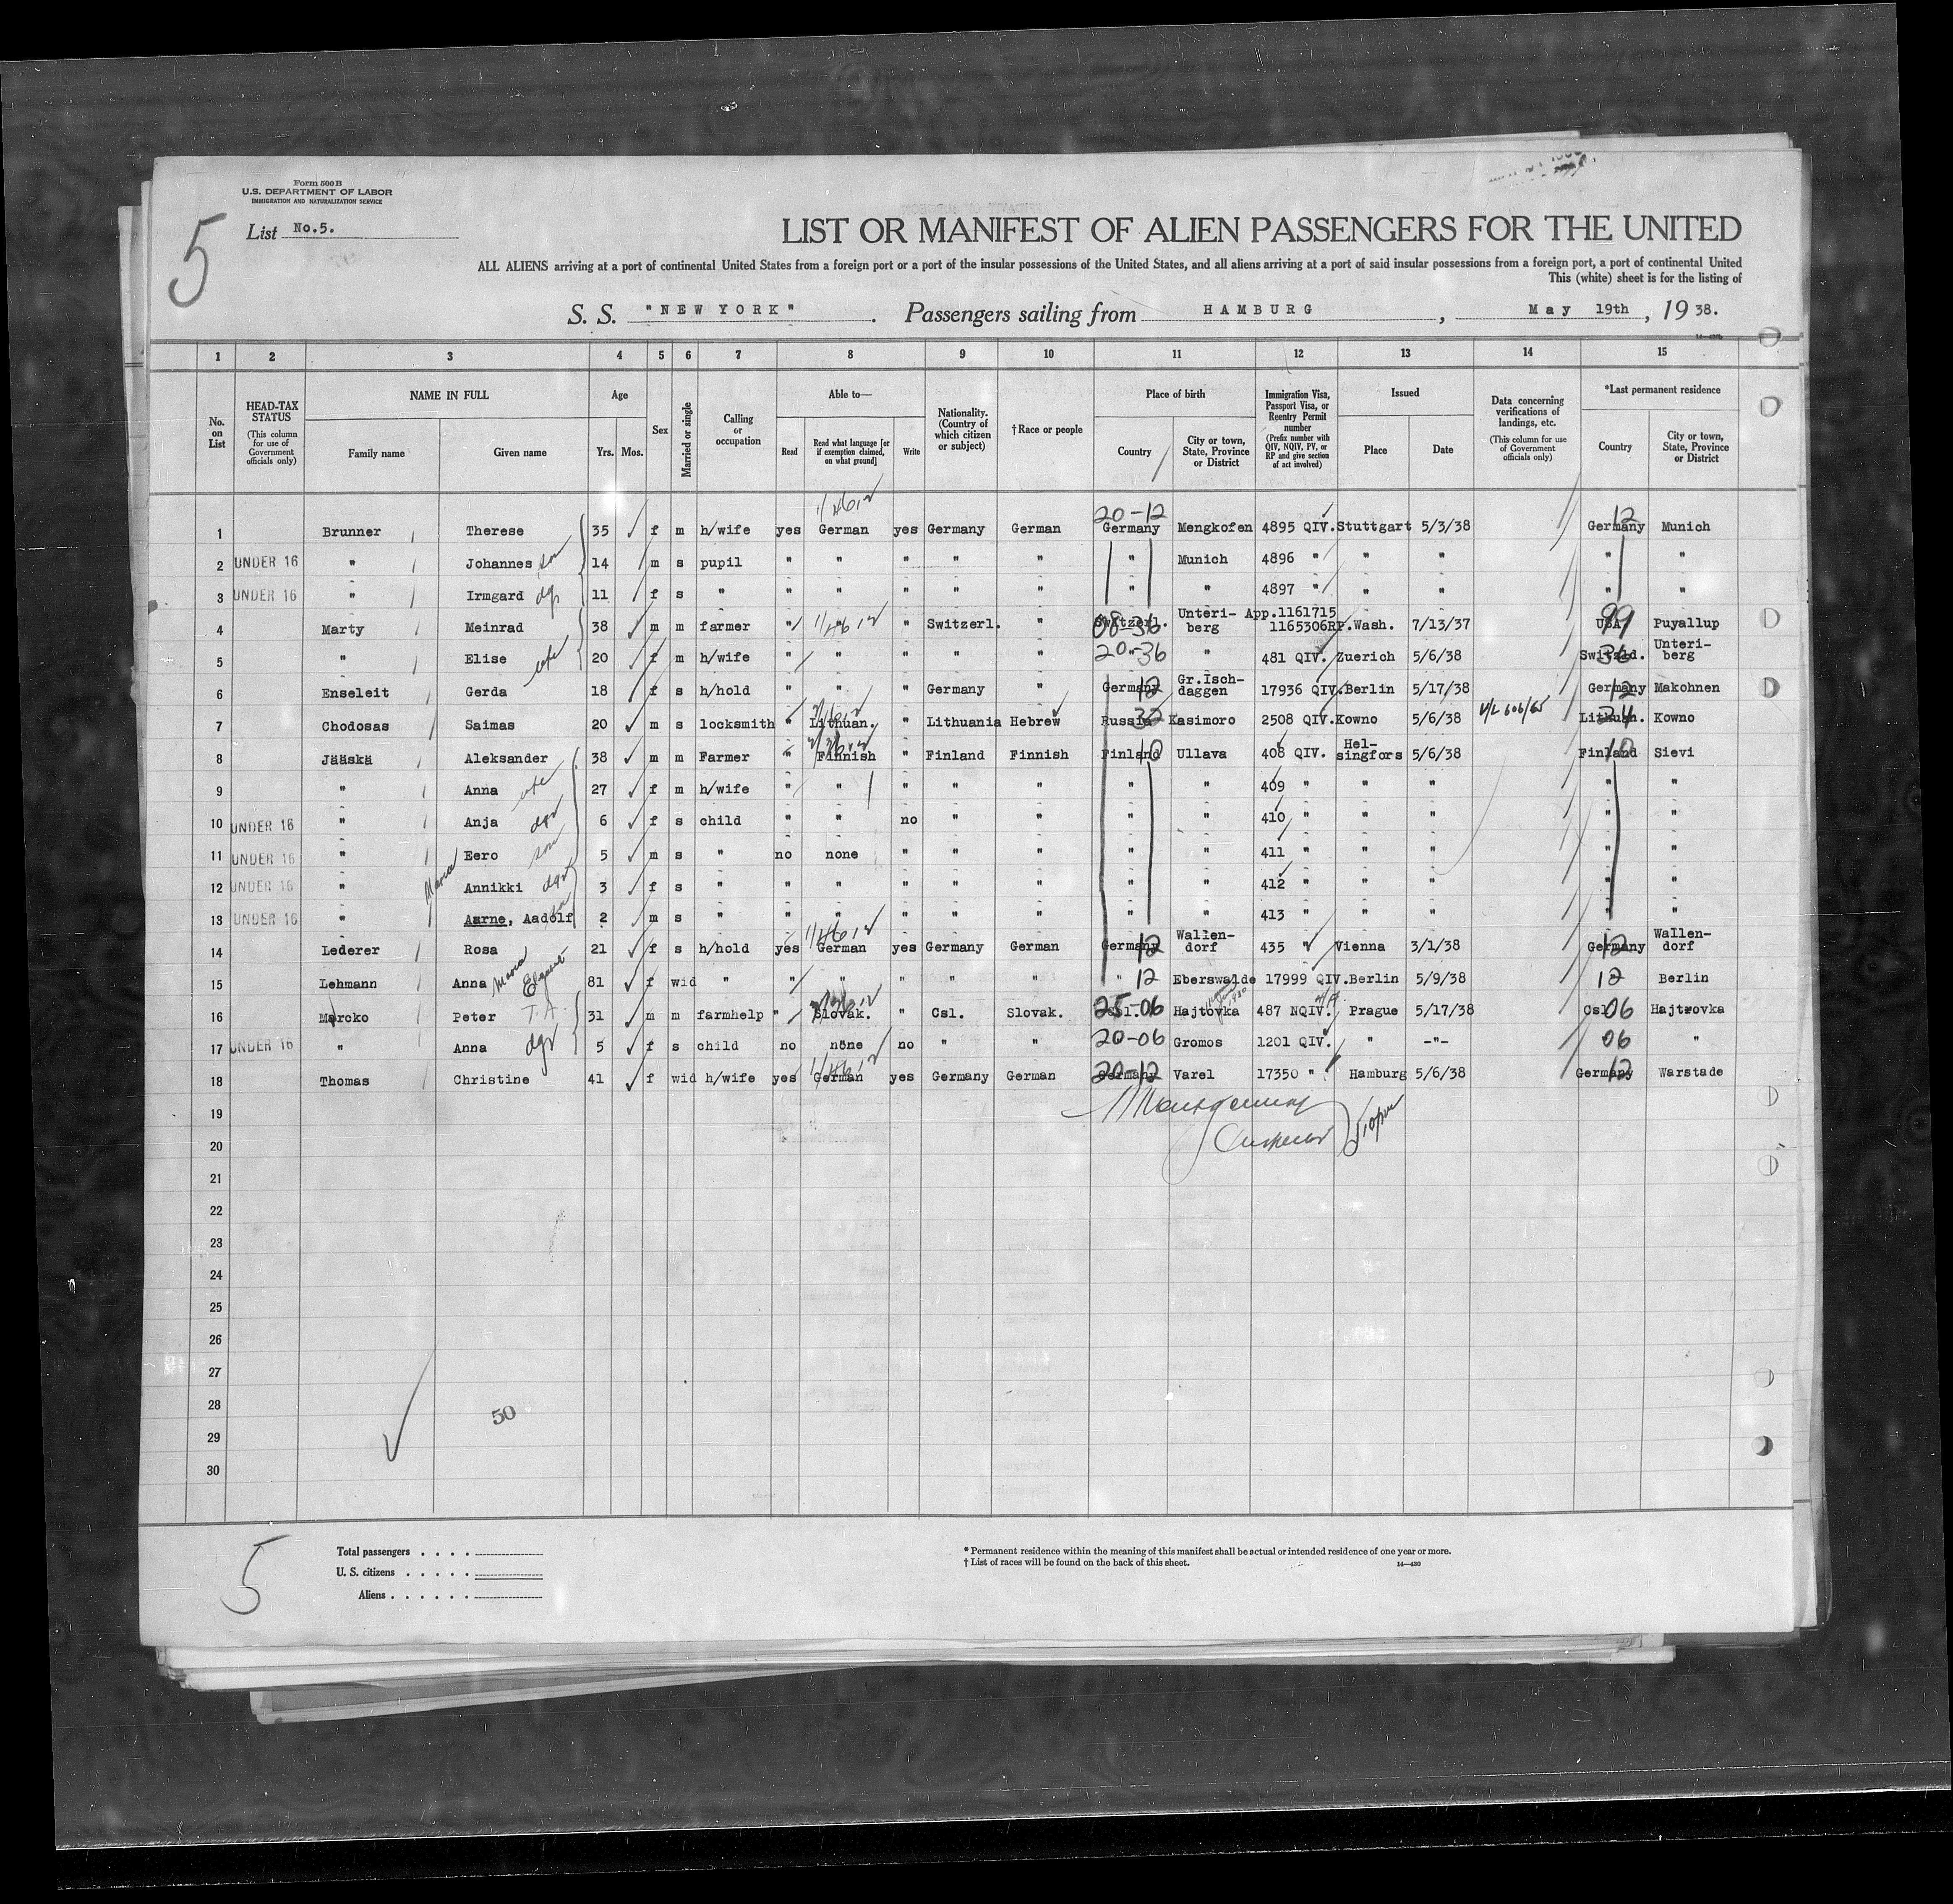 Form 500 B
U.S. DEPARTMENT OF LABOR
IMMIGRATION AND NATURALIZATION SERVICE
List No.5.
5
LIST OR MANIFEST OF ALIEN PASSENGERS FOR THE UNITED
ALL ALIENS arriving at a port of continental United States from a foreign port or a port of the insular possessions of the United States, and all aliens arriving at a port of said insular possessions from a foreign port, a port of continental United
This (white) sheet is for the listing of
S. S. "NEW YORK" . Passengers sailing from HAMBURG , May 19th , 19 38.
1 2 3 4 5 6 7 8 9 10 11 12 13 14 15
No. on List
HEAD-TAX STATUS (This column for use of Government officials only)
NAME IN FULL Family name Given name
Age Yrs. Mos.
Sex
Married or single
Calling or occupation
Able to— Read Read what language [or if exemption claimed, on what ground] Write
Nationality. (Country of which citizen or subject)
†Race or people
Place of birth Country City or town, State, Province or District
Immigration Visa, Passport Visa, or Reentry Permit number (Prefix number with QIV, NQIV, PV, or RP and give section of act involved)
Issued Place Date
Data concerning verifications of landings, etc. (This column for use of Government officials only)
*Last permanent residence Country City or town, State, Province or District
20-12 12
1 Brunner Therese 35 f m h/wife yes German yes Germany German Germany Mengkofen 4895 QIV. Stuttgart 5/3/38 Germany Munich
2 UNDER 16 " Johannes son 14 m s pupil " " " " " " Munich 4896 " " " " "
3 UNDER 16 " Irmgard dgr 11 f s " " " " " " " " 4897 " " " " "
4 Marty Meinrad 38 m m farmer " " " Switzerl. " Switzerl. 08-36 Unteri-berg App.1161715 1165306RP. Wash. 7/13/37 USA 99 Puyallup
5 " Elise wfe 20 f m h/wife " " " " " 20-36 " 481 QIV. Zuerich 5/6/38 Switzld. 36 Unteri-berg
6 Enseleit Gerda 18 f s h/hold " " " Germany " Germany 12 Gr.Isch-daggen 17936 QIV. Berlin 5/17/38 Germany 12 Makohnen
7 Chodosas Saimas 20 m s locksmith " Lithuan. " Lithuania Hebrew Russia 32 Kasimoro 2508 QIV. Kowno 5/6/38 V/L 606/65 Lithuan. Kowno
8 Jääskä Aleksander 38 m m Farmer " Finnish " Finland Finnish Finland 10 Ullava 408 QIV. Hel-singfors 5/6/38 Finland 10 Sievi
9 " Anna wfe 27 f m h/wife " " " " " " " 409 " " " " "
10 UNDER 16 " Anja dgr 6 f s child " " no " " " " 410 " " " " "
11 UNDER 16 " Eero son 5 m s " no none " " " " " 411 " " " " "
12 UNDER 16 " Maria Annikki dgr 3 f s " " " " " " " " 412 " " " " "
13 UNDER 16 " Aarne, Aadolf 2 m s " " " " " " " " 413 " " " " "
14 Lederer Rosa 21 f s h/hold yes German yes Germany German Germany 12 Wallen-dorf 435 " Vienna 3/1/38 Germany 12 Wallen-dorf
15 Lehmann Anna Maria 81 f wid " " " " " " " 12 Eberswalde 17999 QIV. Berlin 5/9/38 12 Berlin
16 Marcko Peter T.A. 31 m m farmhelp " Slovak. " Csl. Slovak. Csl. 25-06 Hajtovka 487 NQIV. Prague 5/17/38 Csl 06 Hajtrovka
17 UNDER 16 " Anna dgr 5 f s child no none no " " 20-06 Gromos 1201 QIV. " -"- 06 "
18 Thomas Christine 41 f wid h/wife yes German yes Germany German Germany 20-12 Varel 17350 " Hamburg 5/6/38 Germany 12 Warstade
19 Montgomery
20 Inspector 510pm
21
22
23
24
25
26
27
28 50
29
30
5
Total passengers . . . .
U. S. citizens . . . . .
Aliens . . . . . .
* Permanent residence within the meaning of this manifest shall be actual or intended residence of one year or more.
† List of races will be found on the back of this sheet. 14—430